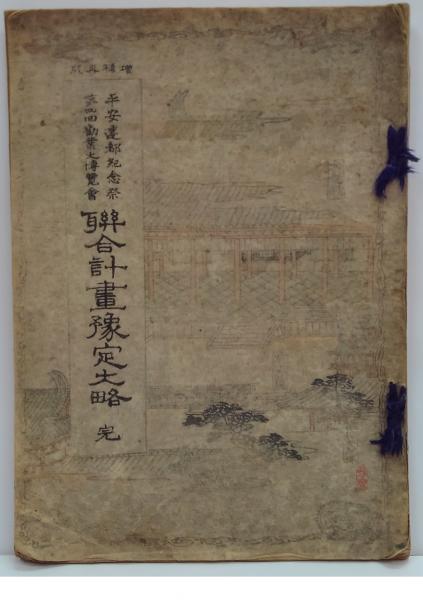 增補再版
平安遷都紀念祭
第四回勸業大博覽會
聯合計畫豫定大略 完